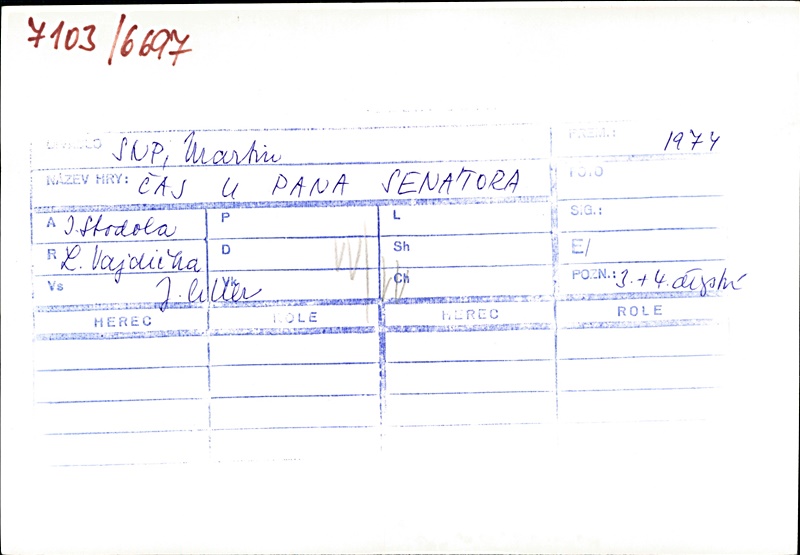 7103/6697
DIVADLO SNP, Martin PREM.: 1974
NÁZEV HRY: ČAS U PANA SENÁTORA FOTO
A I. Stodola P L SIG.:
R L. Vajdička D Sh E/
Vs J. Ciller Vk Ch POZN.: 3. + 4.
HEREC ROLE HEREC ROLE